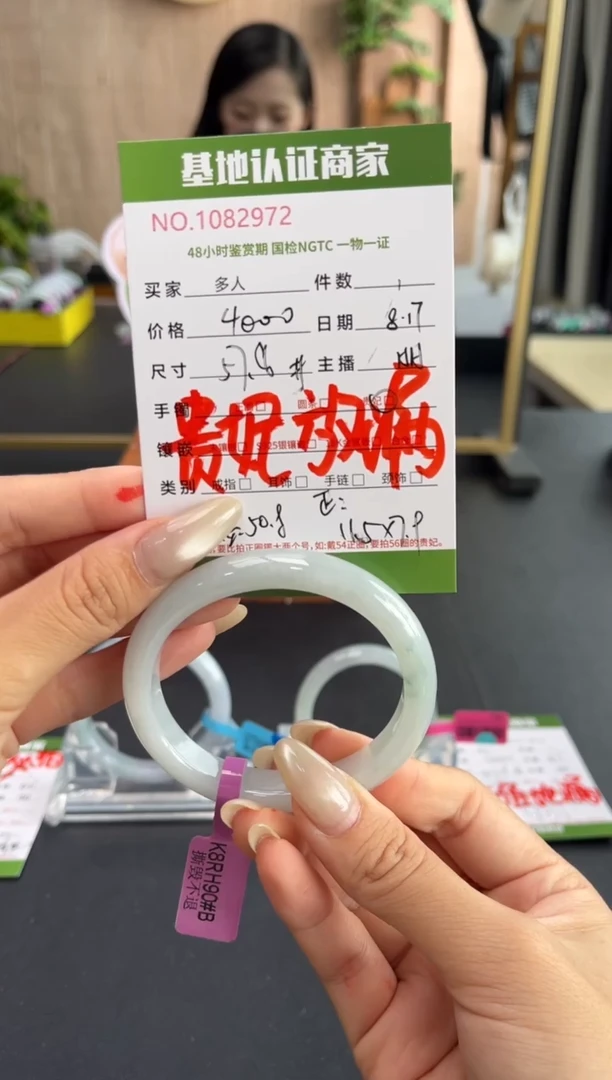 基地认证商家
NO.1082972
48小时鉴赏期 国检NGTC 一物一证
买家 多人 件数 1
价格 4000 日期 8.17
尺寸 57.8 # 主播
手镯 圆条 贵妃
镶嵌
贵妃放漏
类别 戒指 耳饰 手链 颈饰
50.8 正:
11.5x7.9
要比拍正圈镯大两个号,如:戴54正圈,要拍56圈的贵妃。
K8RH90#B
撕毁不退